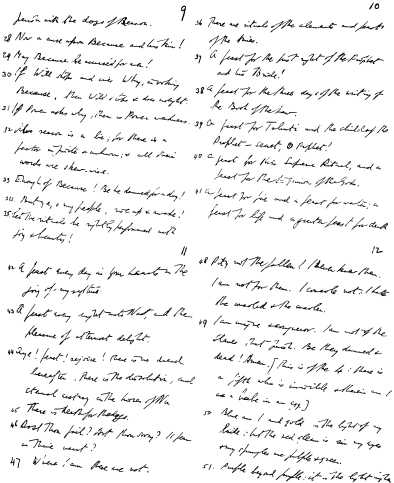 9
perish with the dogs of Reason.
28 Now a curse upon Because and his kin!
29 May Because be accursed for ever!
30 If Will stops and cries Why, invoking
Because, then Will stops & does nought.
31 If Power asks why, then is Power weakness.
32 Also reason is a lie; for there is a
factor infinite & unknown; & all their
words are skew-wise.
33 Enough of Because! Be he damned for a dog!
34 But ye, o my people, rise up & awake!
35 Let the rituals be rightly performed with
joy & beauty!
10
36 There are rituals of the elements and feasts
of the times.
37 A feast for the first night of the Prophet
and his Bride!
38 A feast for the three days of the writing of
the Book of the Law.
39 A feast for Tahuti and the child of the
Prophet – secret, O Prophet!
40 A feast for the Supreme Ritual, and a
feast for the Equinox of the Gods.
41 A feast for fire and a feast for water; a
feast for life and a greater feast for death
11
42 A feast every day in your hearts in the
joy of my rapture.
43 A feast every night unto Nuit and the
pleasure of uttermost delight.
44 Aye! feast! rejoice! there is no dread
hereafter. There is the dissolution, and
eternal ecstasy in the kisses of Nu
45 There is death for the dogs.
46 Dost thou fail? Art thou sorry? Is fear
in thine heart?
47 Where I am these are not.
12
48 Pity not the fallen! I never knew them.
I am not for them. I console not: I hate
the consoled & the consoler.
49 I am unique & conqueror. I am not of the
slaves that perish. Be they damned &
dead! Amen. [This is of the 4: there is
a fifth who is invisible & therein am I
as a babe in an egg.]
50 Blue am I and gold in the light of my
bride: but the red gleam is in my eyes
my spangles are purple & green.
51. Purple beyond purple: it is the light higher